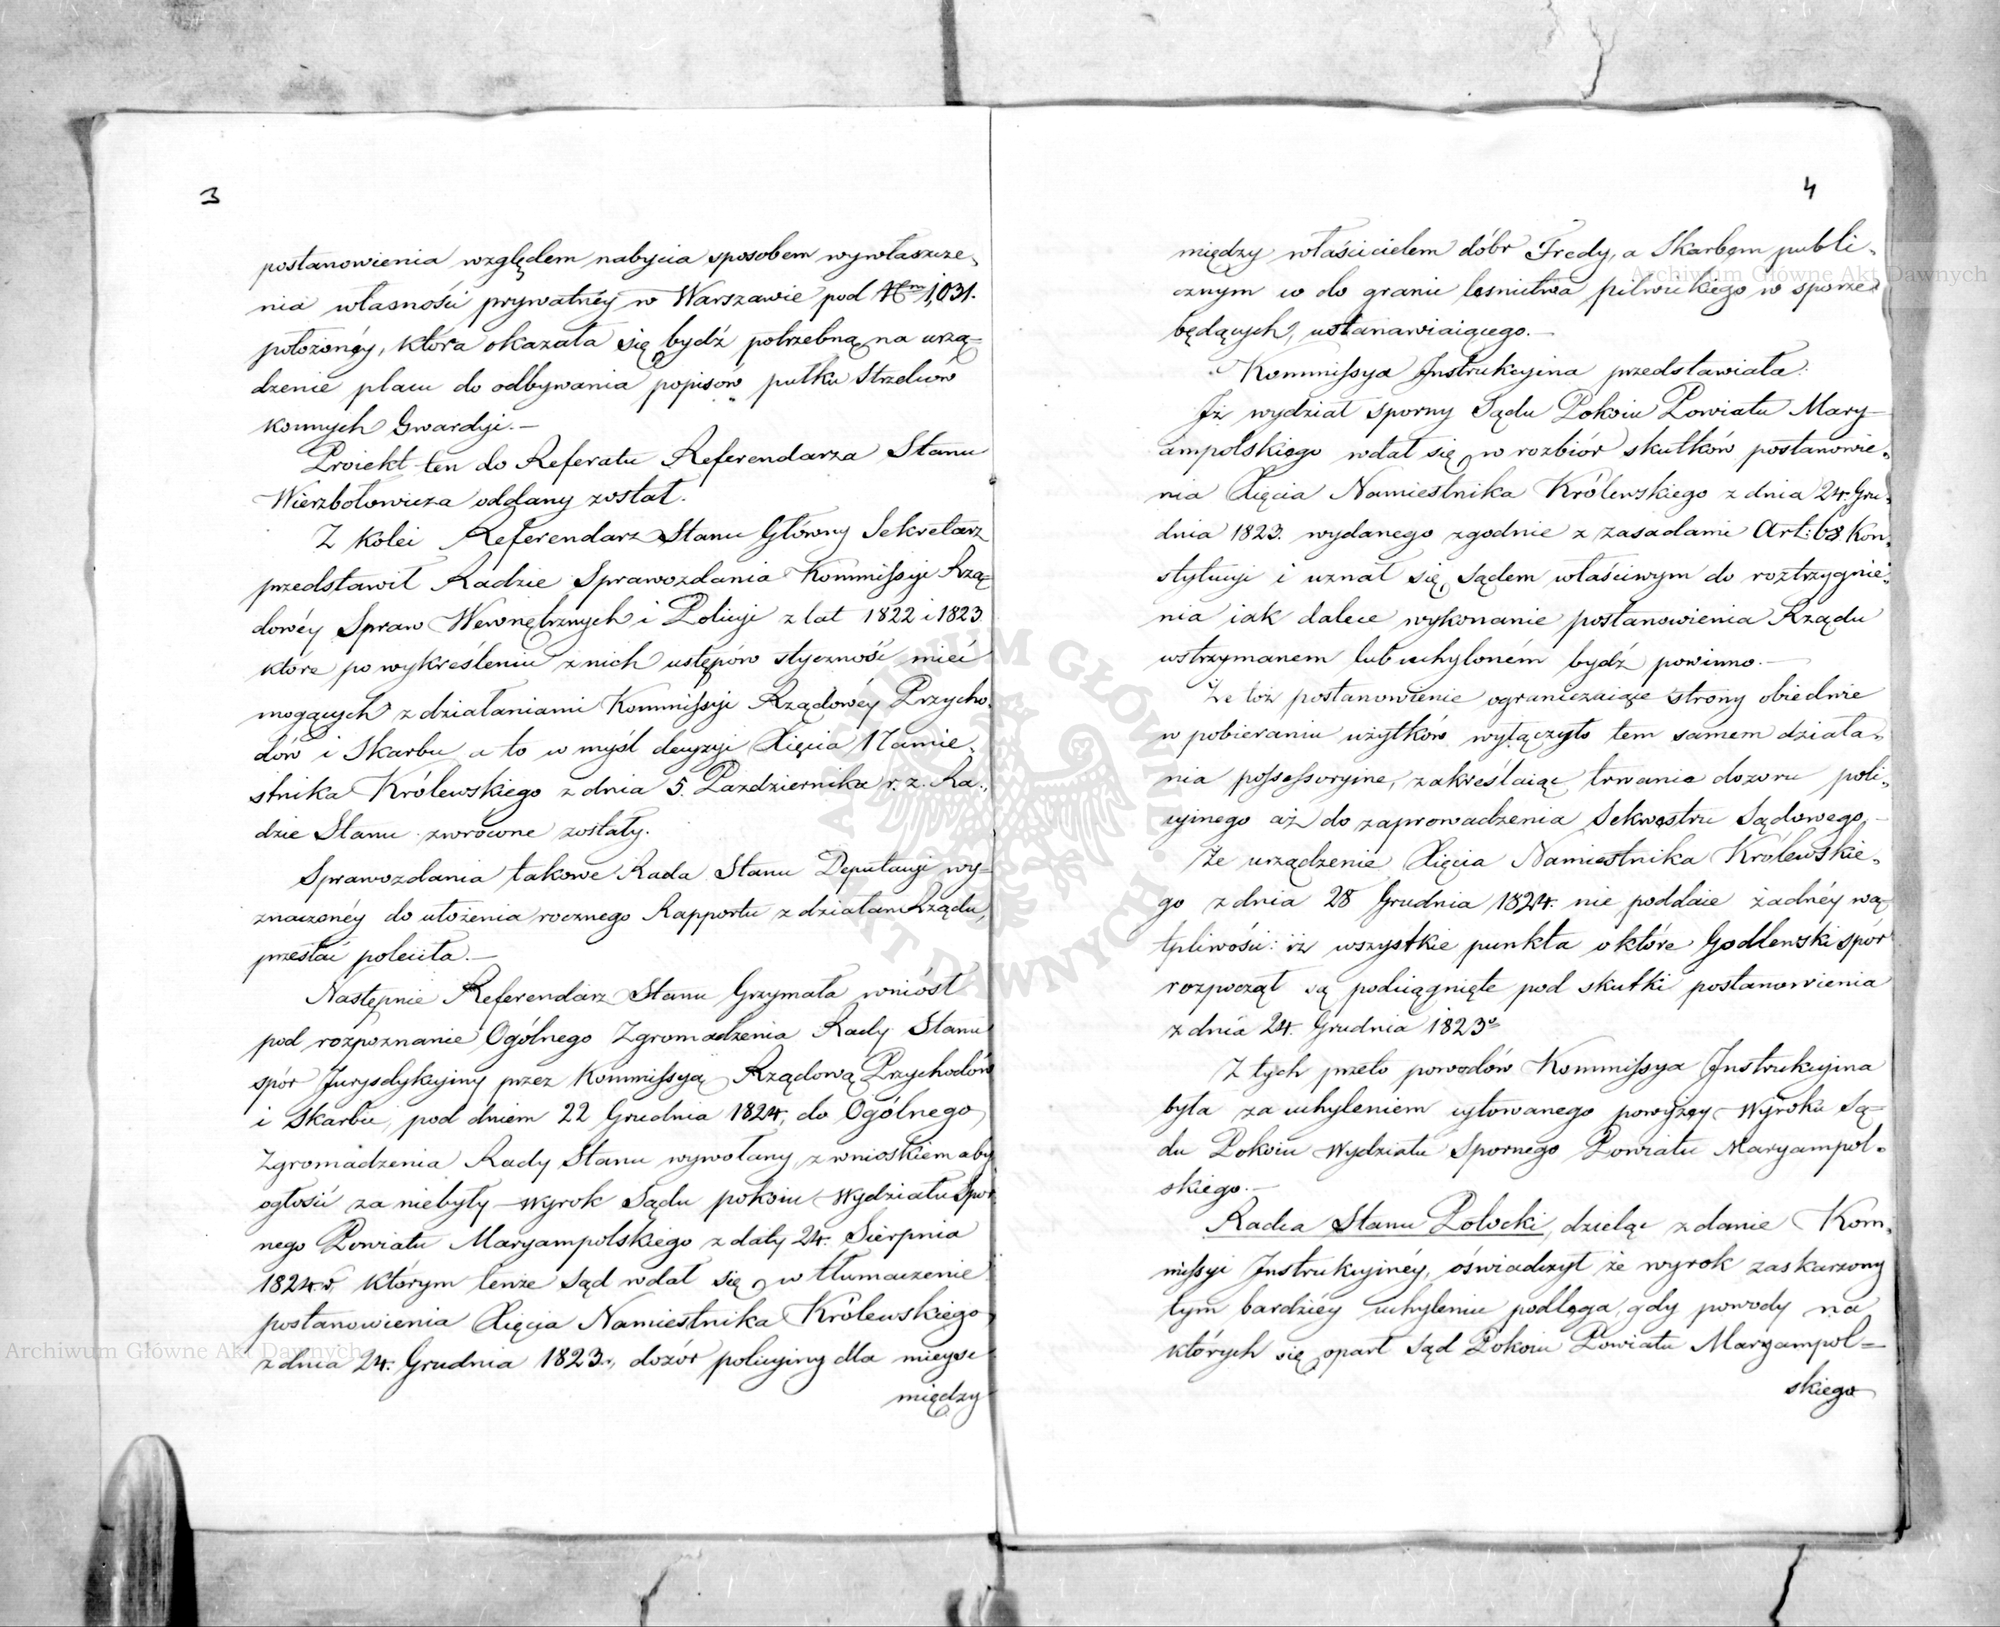 3
postanowienia względem nabycia sposobem wywłaszcze„
nia własności prywatnéy w Warszawie pod Nrm 1,031.
położonéy, która okazała się bydź potrzebną na urzą=
dzenie placu do odbywania popisów pułku Strzelców
konnych Gwardyi.—
Proiekt ten do Referatu Referendarza Stanu
Wierzbołowicza oddany został.
Z kolei Referendarz Stanu Główny Sekretarz
przedstawił Radzie Sprawozdania Kommissyi Rzą=
dowéy Spraw Wewnętrznych i Policyi z lat 1822 i 1823
które po wykreśleniu z nich ustępów styczność mieć
mogących z działaniami Kommissyi Rządowéy Przycho„
dów i Skarbu a to w myśl decyzyi Xięcia Namie„
stnika Królewskiego z dnia 5. Pazdziernika r. z. Ra„
dzie Stanu zwrócone zostały.
Sprawozdania takowe Rada Stanu Deputacyi wy=
znaczonéy do ułożenia rocznego Rapportu z działań Rządu,
przesłać poleciła.—
Następnie Referendarz Stanu Grzymała wniósł
pod rozpoznanie Ogólnego Zgromadzenia Rady Stanu
spór Jurysdykcyiny przez Kommissyą Rządową Przychodów
i Skarbu, pod dniem 22 Grudnia 1824, do Ogólnego
Zgromadzenia Rady Stanu wywołany, z wnioskiem aby
ogłosić za niebyły wyrok Sądu pokoiu Wydziału Spor
nego Powiatu Maryampolskiego z daty 24. Sierpnia
1824. w którym tenże Sąd wdał się w tłumaczenie
postanowienia Xięcia Namiestnika Królewskiego
z dnia 24. Grudnia 1823., dozór policyiny dla mieysc
między
4
między właścicielem dóbr Fredy, a Skarbem publi„
cznym co do granic leśnictwa pilwickiego w sporze
będących, ustanawiaiącego.—
Kommissya Instrukcyina przedstawiała:
Iż wydział sporny Sądu Pokoiu Powiatu Mary—
ampolskiego wdał się w rozbiór skutków postanowie„
nia Xięcia Namiestnika Królewskiego z dnia 24. Gru„
dnia 1823. wydanego zgodnie z zasadami Art: 68 Kon„
stytucyi i uznał się Sądem właściwym do roztrzygnie„
nia iak dalece wykonanie postanowienia Rządu
wstrzymanem lub uchyloném bydź powinno.—
Że toż postanowienie ograniczaiąc strony obiedwie
w pobieraniu użytków wyłączyło tem samem działa„
nia possessoryine, zakreślaiąc trwanie dozoru poli„
cyinego aż do zaprowadzenia Sekwestru Sądowego.—
Że urządzenie Xięcia Namiestnika Królewskie„
go z dnia 28 Grudnia 1824. nie poddaie żadnéy wą
tpliwości: iż wszystkie punkta o które Godlewski spór
rozpoczął są podciągnięte pod skutki postanowienia
z dnia 24. Grudnia 1823.
Z tych przeto powodów Kommissya Instrukcyina
była za uchyleniem cytowanego powyżey Wyroku Są=
du Pokoiu Wydziału Spornego Powiatu Maryampol„
skiego.—
Radca Stanu Potocki, dzieląc zdanie Kom„
missyi Instrukcyinéy, oświadczył że wyrok zaskarzony
tym bardziéy uchyleniu podlega, gdy powody na
których się oparł Sąd Pokoiu Powiatu Maryampol=
skiego
Archiwum Główne Akt Dawnych
Archiwum Główne Akt Dawnych
ARCHIWUM GŁÓWNE AKT DAWNYCH